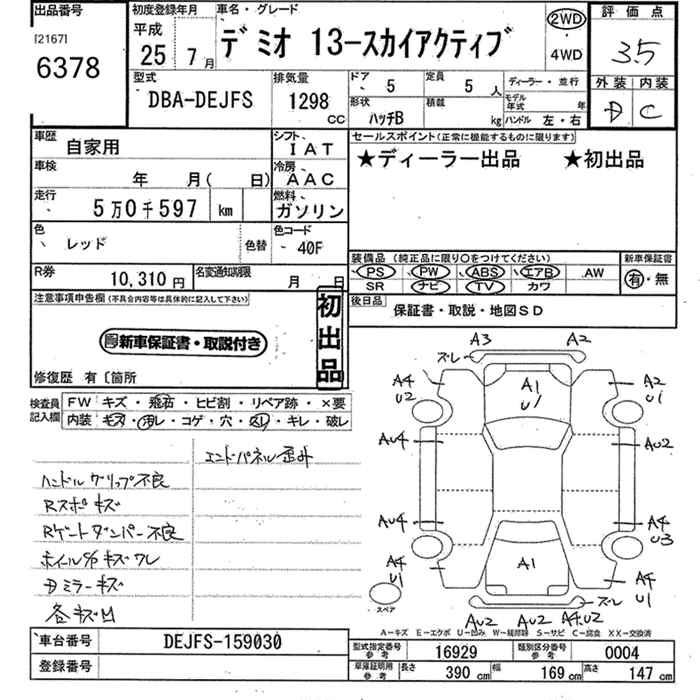 出品番号
[2167]
6378
初度登録年月
平成
25年 7月
車名・グレード
デミオ 13-スカイアクティブ
2WD
4WD
評価点
3.5
型式
DBA-DEJFS
排気量
1298 CC
ドア 5
定員 5 人
形状 ハッチB
積載 kg
ディーラー・並行
モデル年式 年
ハンドル 左・右
外装 内装
D C
車歴
自家用
シフト
IAT
車検
年 月( 日)
冷房
AAC
走行
5万0千597 km
燃料
ガソリン
色
レッド
色替
色コード
- 40F
R券
10,310円
名変通知期限
月 日
セールスポイント(正常に機能するものに限ります)
★ディーラー出品 ★初出品
装備品 (純正品に限り○をつけてください)
PS PW ABS エアB AW
SR ナビ TV カワ
新車保証書
有・無
後日品
保証書・取説・地図SD
注意事項申告欄(不具合内容等は具体的に記入して下さい)
新車保証書・取説付き
初出品
修復歴 有〔箇所
検査員記入欄
FW キズ・飛石・ヒビ割・リペア跡・×要
内装 キズ・汚レ・コゲ・穴・スレ・キレ・破レ
エンドパネル歪み
ハンドルグリップ不良
Rスポキズ
Rゲートダンパー不良
ホイルS/Pキズワレ
Dミラーキズ
各キズ凹
A3 A2
ズレ
A4 U2
A1 U1
A2 U1
AU4
AU2
AU4
A4 U3
A4 U1
A1
A4 U1
スペア
ズレ
AU2 AU2 A4.U2
A-キズ E-エクボ U-凹み W-補修跡 S-サビ C-腐食 XX-交換済
車台番号
DEJFS-159030
登録番号
型式指定番号参考
16929
類別区分番号参考
0004
車庫証明用参考
長さ 390 cm
幅 169 cm
高さ 147 cm